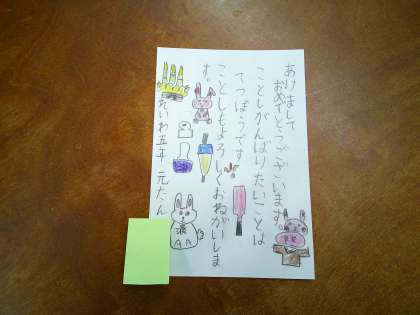 あけまして
おめでとうございます。
ことしがんばりたいことは
てつぼうです。
ことしもよろしくおねがいしま
す。
れいわ五年 元たん